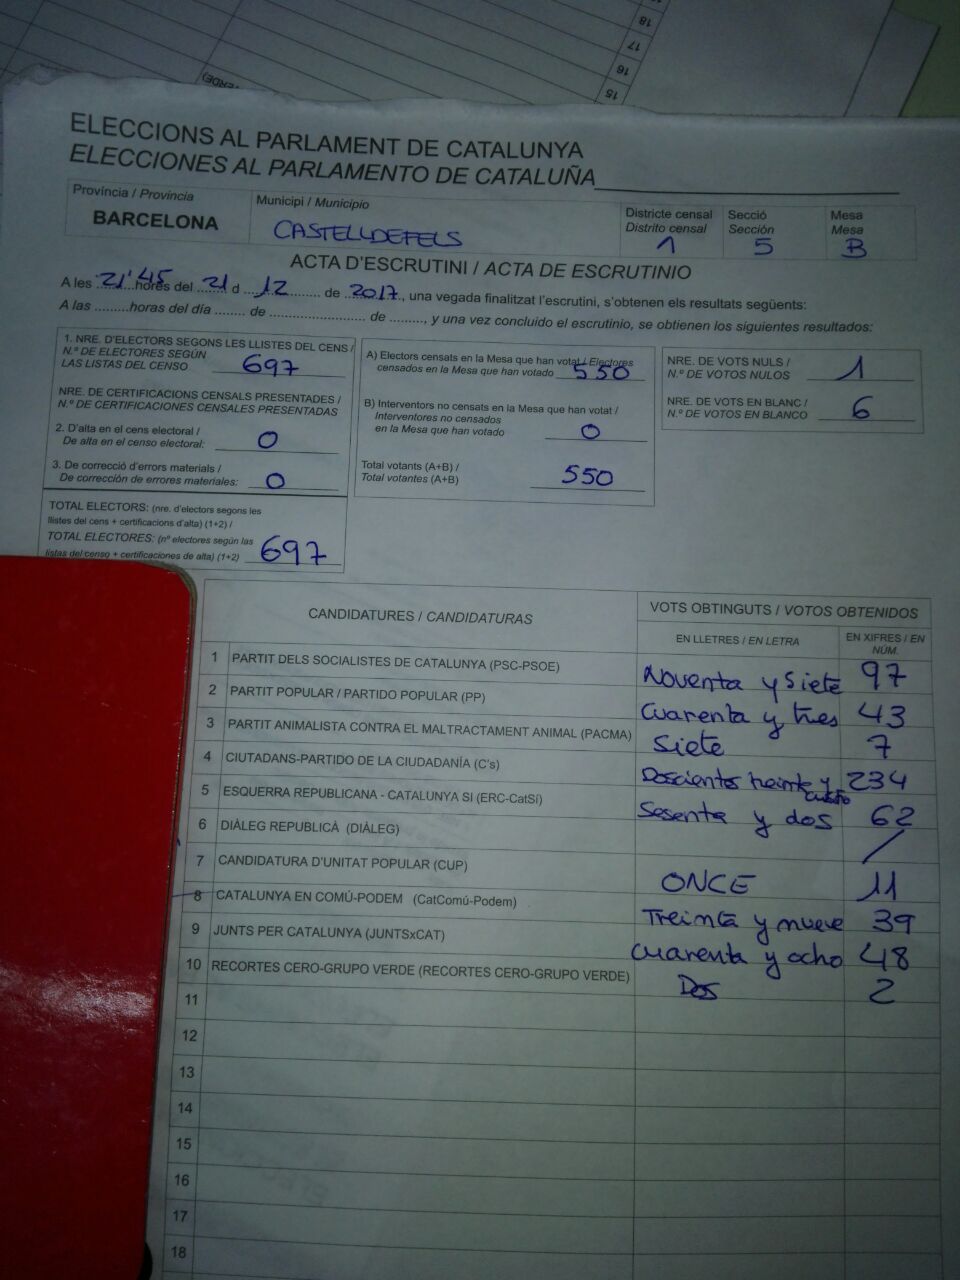 18
17
16
15
ELECCIONS AL PARLAMENT DE CATALUNYA
ELECCIONES AL PARLAMENTO DE CATALUÑA
Província / Provincia
BARCELONA
Municipi / Municipio
CASTELLDEFELS
Districte censal
Distrito censal
1
Secció
Sección
5
Mesa
Mesa
B
ACTA D'ESCRUTINI / ACTA DE ESCRUTINIO
A les 21'45 hores del 21 d 12 de 2017, una vegada finalitzat l'escrutini, s'obtenen els resultats següents:
A las .........horas del día ........ de ....................... de ........., y una vez concluido el escrutinio, se obtienen los siguientes resultados:
1. NRE. D'ELECTORS SEGONS LES LLISTES DEL CENS /
N.º DE ELECTORES SEGÚN
LAS LISTAS DEL CENSO 697
NRE. DE CERTIFICACIONS CENSALS PRESENTADES /
N.º DE CERTIFICACIONES CENSALES PRESENTADAS
2. D'alta en el cens electoral /
De alta en el censo electoral: 0
3. De correcció d'errors materials /
De corrección de errores materiales: 0
TOTAL ELECTORS: (nre. d'electors segons les
llistes del cens + certificacions d'alta) (1+2) /
TOTAL ELECTORES: (nº electores según las
listas del censo + certificaciones de alta) (1+2) 697
A) Electors censats en la Mesa que han votat / Electores
censados en la Mesa que han votado 550
B) Interventors no censats en la Mesa que han votat /
Interventores no censados
en la Mesa que han votado 0
Total votants (A+B) /
Total votantes (A+B) 550
NRE. DE VOTS NULS /
N.º DE VOTOS NULOS 1
NRE. DE VOTS EN BLANC /
N.º DE VOTOS EN BLANCO 6
CANDIDATURES / CANDIDATURAS
VOTS OBTINGUTS / VOTOS OBTENIDOS
EN LLETRES / EN LETRA
EN XIFRES / EN
NÚM.
1 PARTIT DELS SOCIALISTES DE CATALUNYA (PSC-PSOE) Noventa y Siete 97
2 PARTIT POPULAR / PARTIDO POPULAR (PP) Cuarenta y tres 43
3 PARTIT ANIMALISTA CONTRA EL MALTRACTAMENT ANIMAL (PACMA) Siete 7
4 CIUTADANS-PARTIDO DE LA CIUDADANÍA (C's) Doscientos treinta y cuatro 234
5 ESQUERRA REPUBLICANA - CATALUNYA SI (ERC-CatSí) Sesenta y dos 62
6 DIÀLEG REPUBLICÀ (DIÀLEG) /
7 CANDIDATURA D'UNITAT POPULAR (CUP) ONCE 11
8 CATALUNYA EN COMÚ-PODEM (CatComú-Podem) Treinta y nueve 39
9 JUNTS PER CATALUNYA (JUNTSxCAT) Cuarenta y ocho 48
10 RECORTES CERO-GRUPO VERDE (RECORTES CERO-GRUPO VERDE) Dos 2
11
12
13
14
15
16
17
18